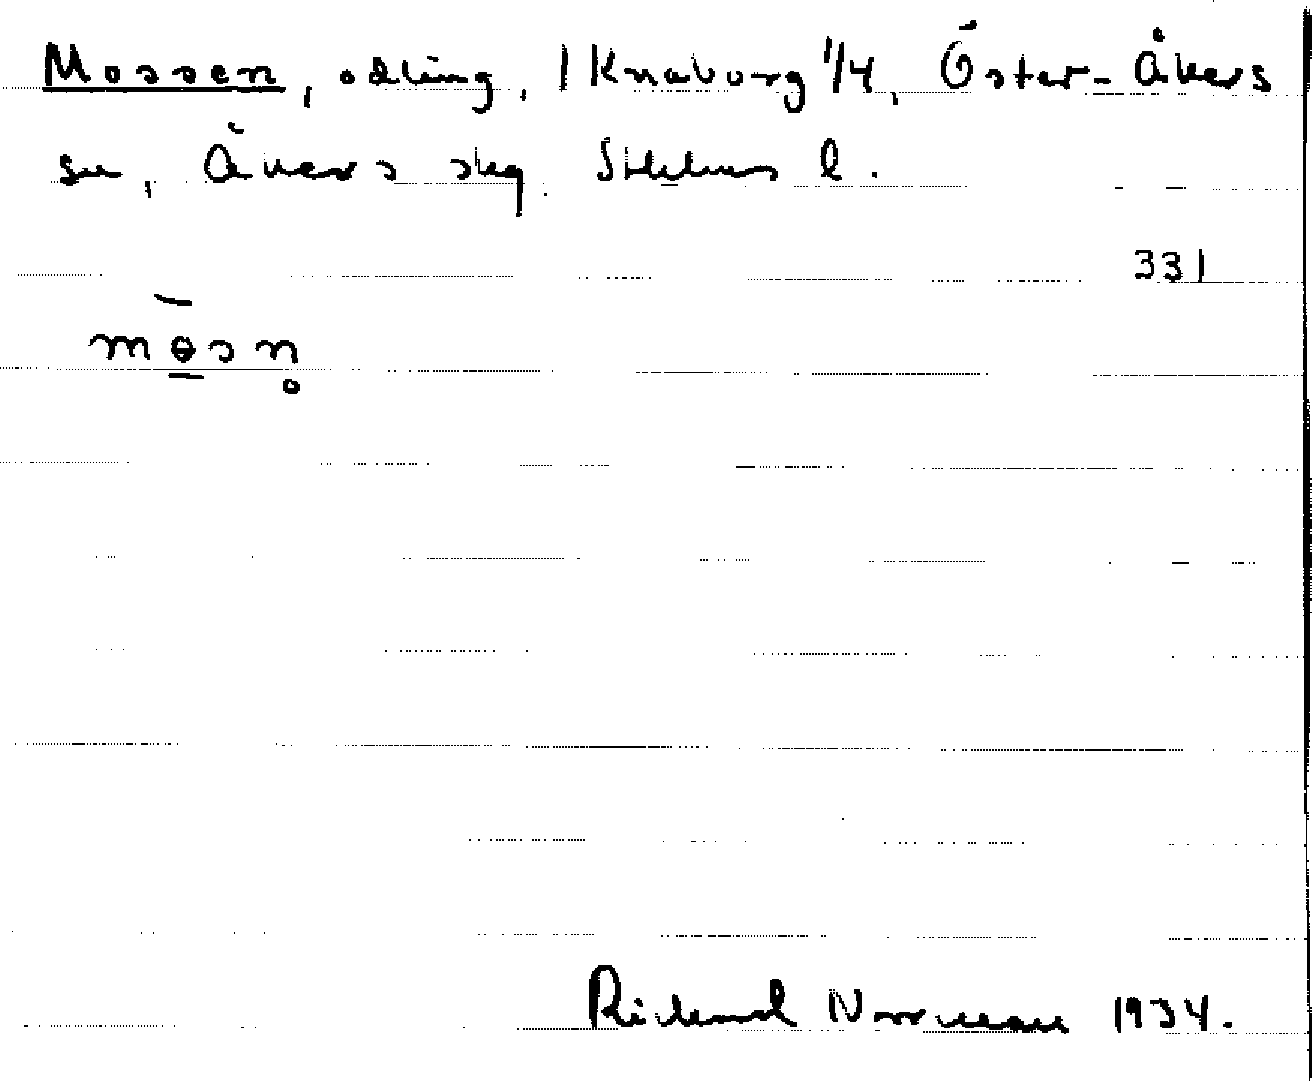 Mossen, odling, 1 Knaborg 1/4, Öster-Åkers
sn, Åkers skg. Sthlms l.
331
mɵ̄sn̥
Richard Norrman 1934.